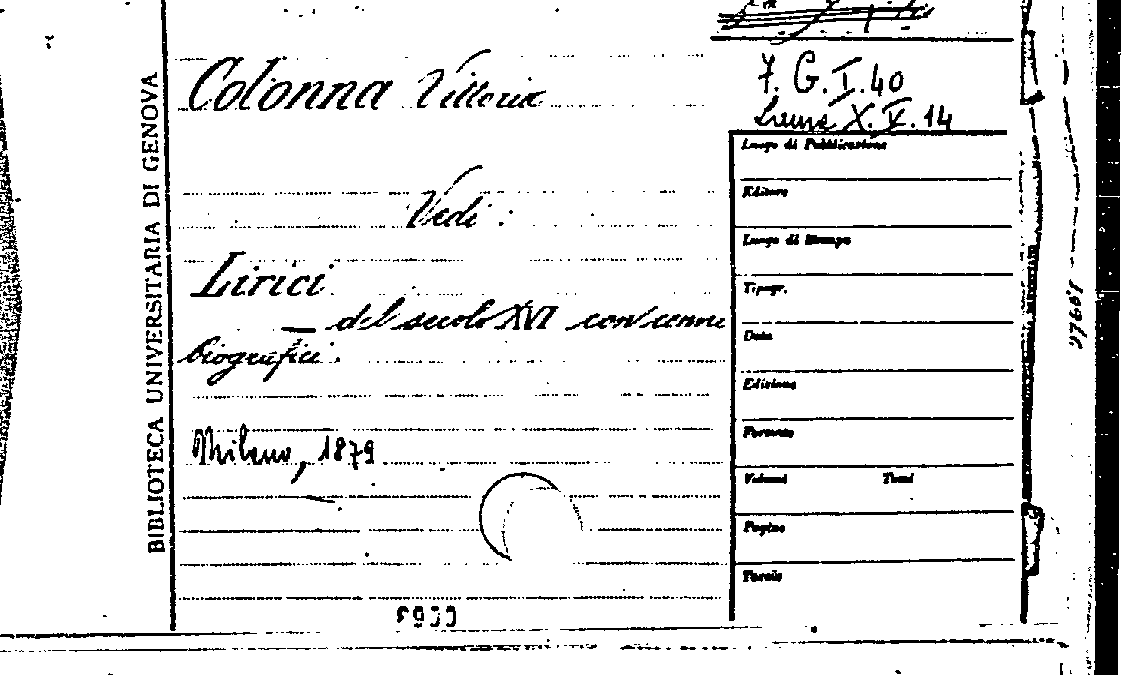 BIBLIOTECA UNIVERSITARIA DI GENOVA
7. G. I. 40
X. V. 14
Colonna Vittoria
Vedi :
Lirici
del secolo XVI con cenni
biografici.
Milano, 1879
Luogo di Pubblicazione
Editore
Luogo di Stampa
Tipogr.
Data
Edizione
Formato
Volumi Tomi
Pagine